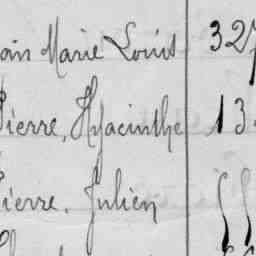 Marie Louis 327
Pierre, Hyacinthe 13
Pierre, Julien